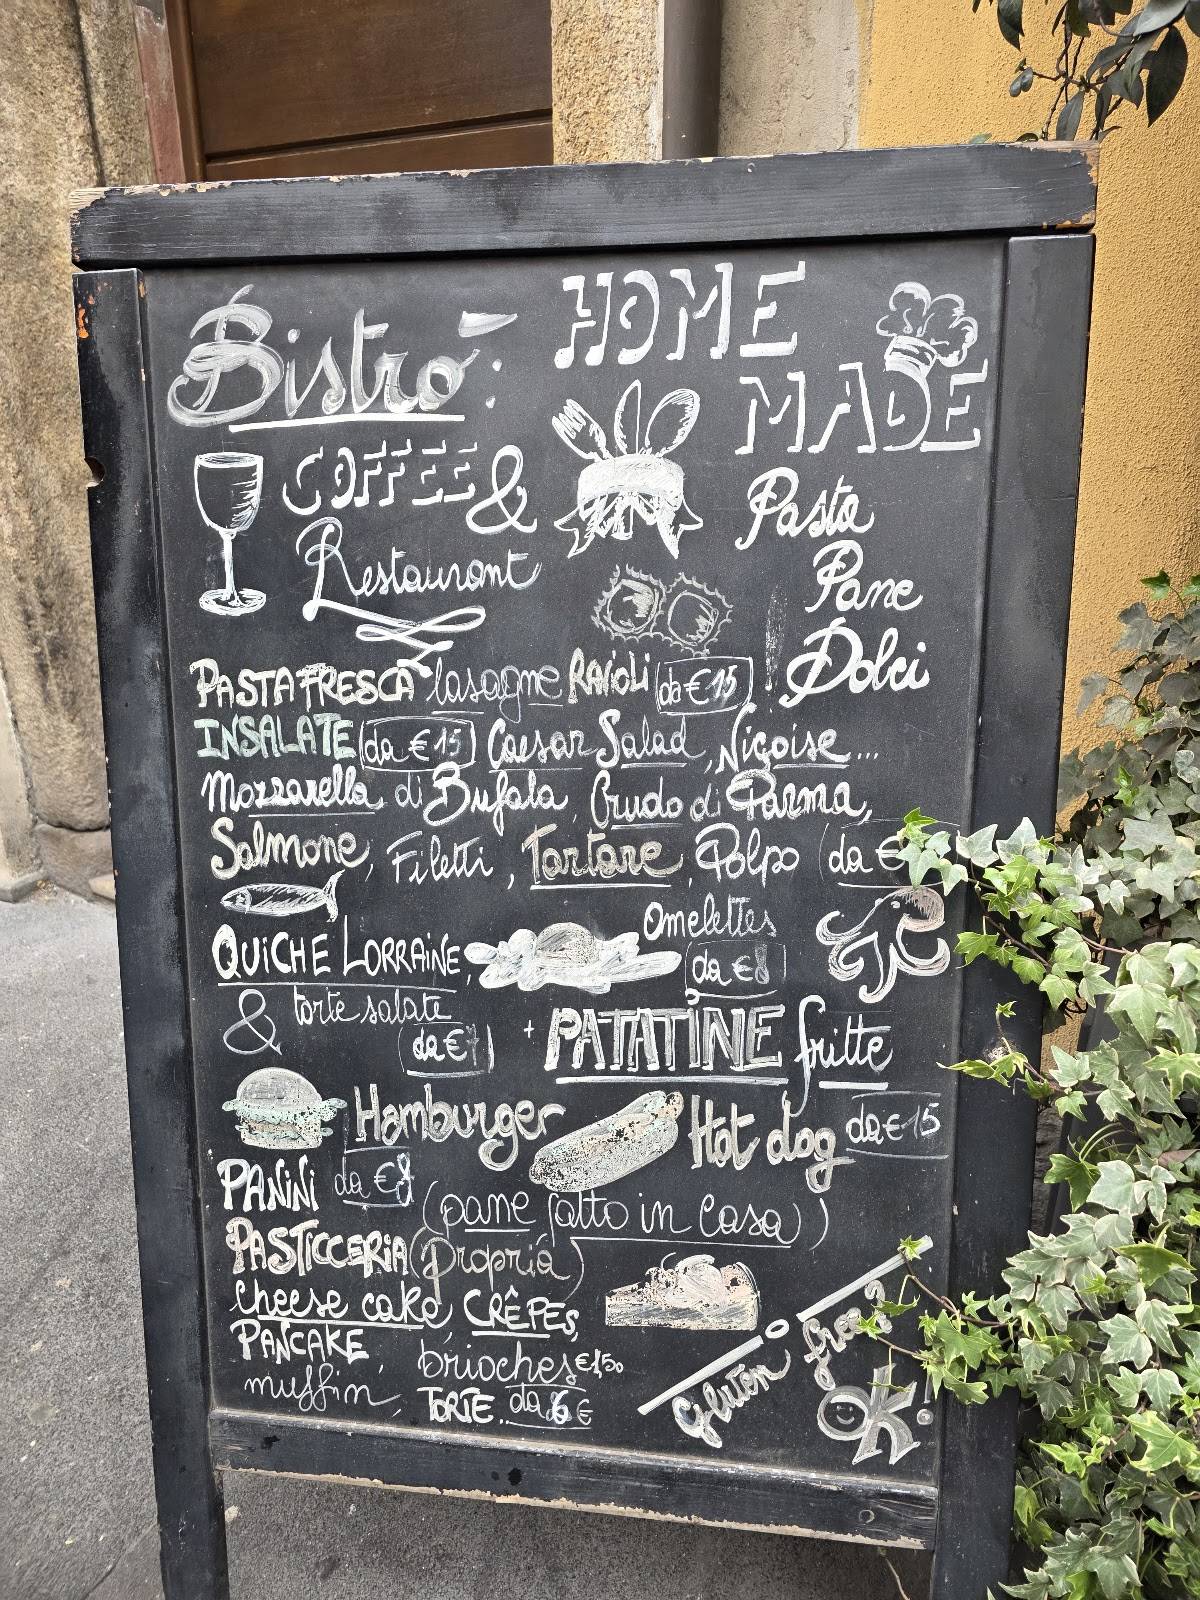 Bistrò:
HOME
MADE
COFFEE &
Restaurant
Pasta
Pane
Dolci
PASTA FRESCA lasagne RAVIOLI da €15
INSALATE da €15 Caesar Salad, Niçoise...
Mozzarella di Bufala, Crudo di Parma,
Salmone, Filetti, Tartare, Polpo (da €
Omelettes
da €8
QUICHE LORRAINE,
& torte salate
da €
+ PATATINE fritte
Hamburger Hot dog da €15
PANINI da €8
(pane fatto in casa)
PASTICCERIA (Propria)
cheese cake, CRÊPES,
PANCAKE, brioches €1,50
muffin, TORTE.. da 6 €
Gluten free?
OK!